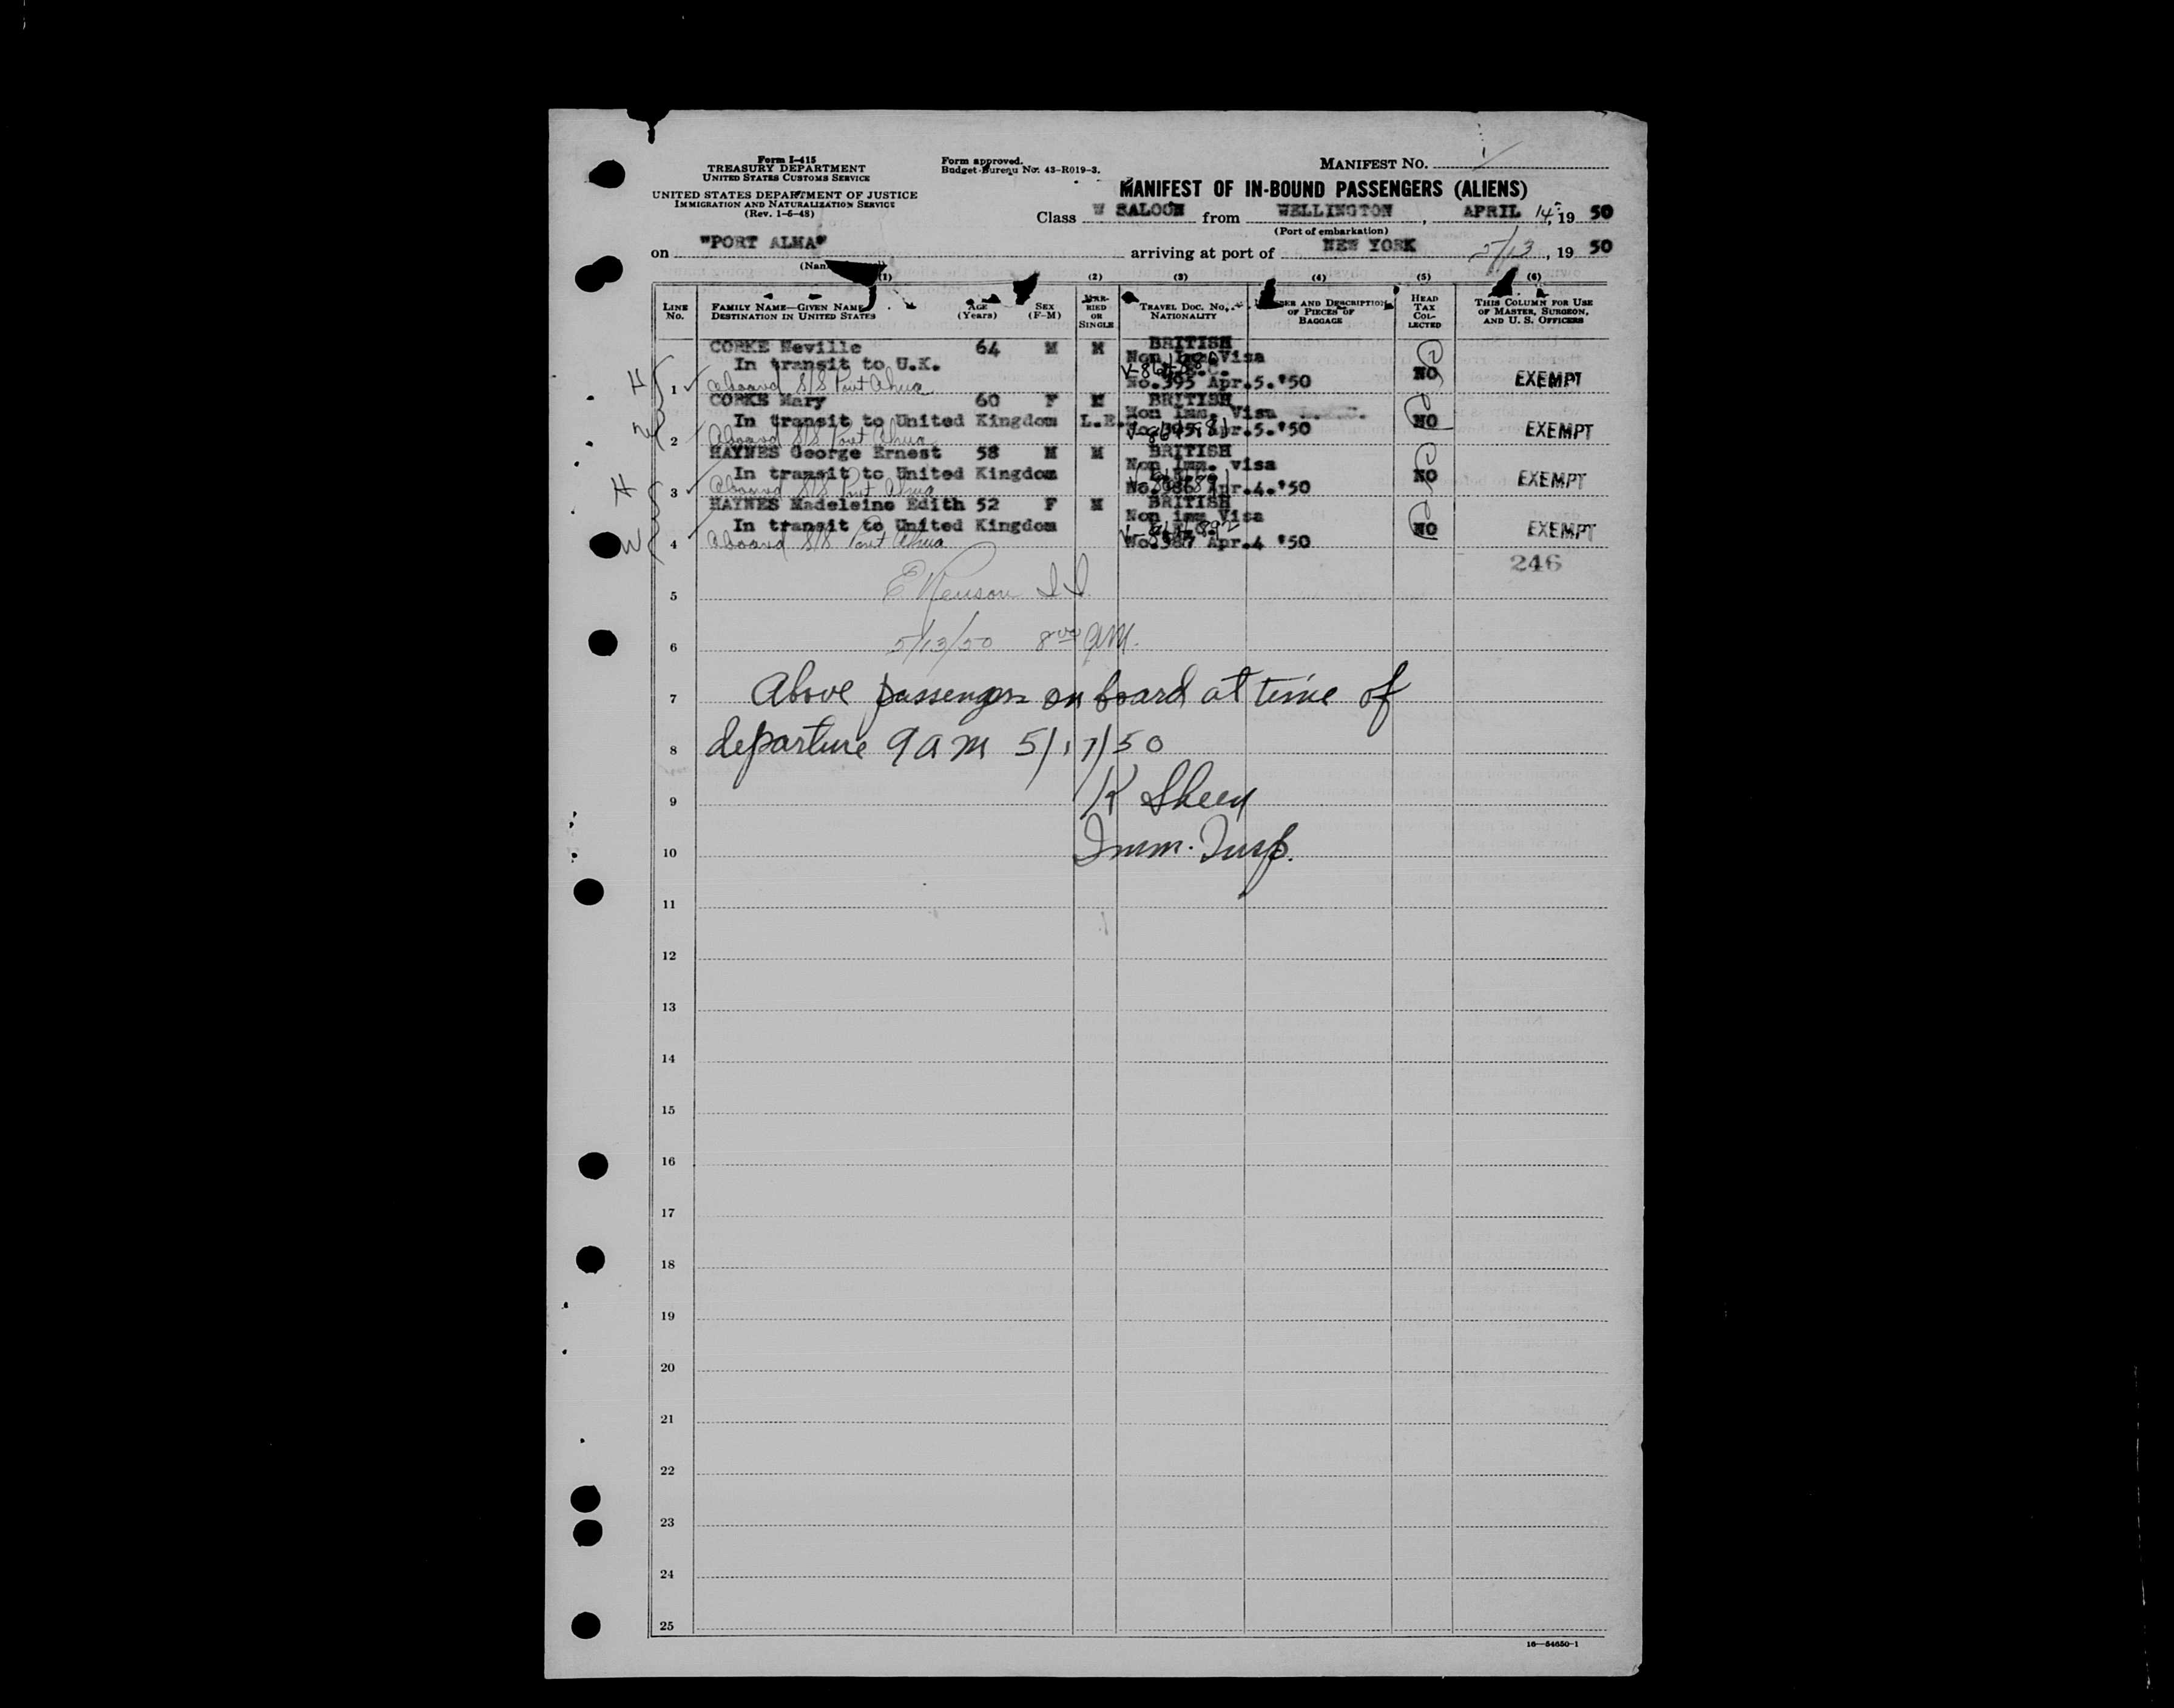 Form I-415
TREASURY DEPARTMENT
UNITED STATES CUSTOMS SERVICE
UNITED STATES DEPARTMENT OF JUSTICE
IMMIGRATION AND NATURALIZATION SERVICE
(Rev. 1-6-48)
Form approved.
Budget Bureau No. 43-R019-3.
MANIFEST NO. 1
MANIFEST OF IN-BOUND PASSENGERS (ALIENS)
Class SALOON from WELLINGTON, APRIL 14, 19 50
(Port of embarkation)
on "PORT ALMA" arriving at port of NEW YORK 5/13, 19 50
(1) (2) (3) (4) (5) (6)
LINE NO.
FAMILY NAME—GIVEN NAME
DESTINATION IN UNITED STATES
AGE (Years)
SEX (F-M)
MARRIED OR SINGLE
TRAVEL DOC. NO.
NATIONALITY
AND DESCRIPTION OF PIECES OF BAGGAGE
HEAD TAX COLLECTED
THIS COLUMN FOR USE OF MASTER, SURGEON, AND U. S. OFFICERS
CORKE Neville 64 M M BRITISH
In transit to U.K. Non Imm Visa
1 aboard S/S Port Alma No.395 Apr.5.'50 NO EXEMPT
H
CORKE Mary 60 F M BRITISH
In transit to United Kingdom L.E. Non Imm. Visa
2 Aboard S/S Port Alma Apr.5.'50 NO EXEMPT
HAYNES George Ernest 58 M M BRITISH
In transit to United Kingdom Non Imm. visa
3 Aboard S/S Port Alma No.386 Apr.4.'50 NO EXEMPT
H
HAYNES Madeleine Edith 52 F M BRITISH
In transit to United Kingdom Non imm Visa
4 Aboard S/S Port Alma No.387 Apr.4 '50 NO EXEMPT
W
246
5
6 5/13/50 8 00 AM.
7 Above passengers on board at time of
8 departure 9 am 5/17/50
9 K Sheey
10 Imm. Insp.
11
12
13
14
15
16
17
18
19
20
21
22
23
24
25
16—54650-1